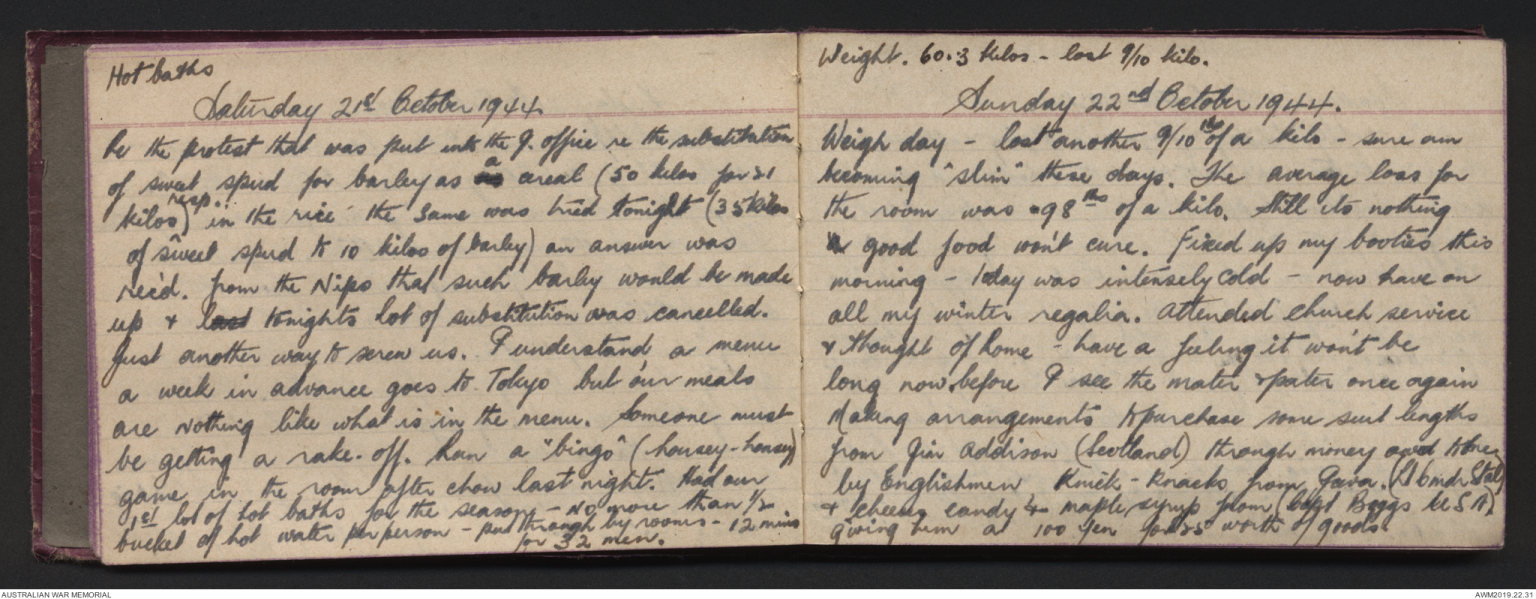 Hot baths
Saturday 21st October 1944
be the protest that was put into the J. office re the substitution
of sweet spud for barley as a cereal (50 kilos for 21
kilos) resp. in the rice the same was tried tonight (35 kilos
of sweet spud to 10 kilos of barley) an answer was
rec'd. from the Nips that such barley would be made
up & last tonights lot of substitution was cancelled.
Just another way to screw us. I understand a menu
a week in advance goes to Tokyo but our meals
are nothing like what is in the menu. Someone must
be getting a rake-off. Ran a "bingo" (housey-housey)
game in the room after chow last night. Had our
1st lot of hot baths for the season - No more than 1/2
bucket of hot water per person - put through by rooms - 12 mins
for 32 men.
Weight. 60.3 kilos - lost 9/10 kilo.
Sunday 22nd October 1944.
Weigh day - lost another 9/10ths of a kilo - sure am
becoming "slim" these days. The average loss for
the room was .98ths of a kilo. Still its nothing
good food won't cure. Fixed up my booties this
morning - today was intensely cold - now have on
all my winter regalia. Attended church service
& thought of home - have a feeling it won't be
long now before I see the mater & pater once again
Making arrangements to purchase some suit lengths
from Jim Addison (Scotland) through money owed to
by Englishmen Knick-Knacks from Java. (Lt
& cheese, candy & maple syrup from (Capt Boggs U.S.A)
giving him a 100 Yen for worth of goods.
AUSTRALIAN WAR MEMORIAL
AWM2019.22.31